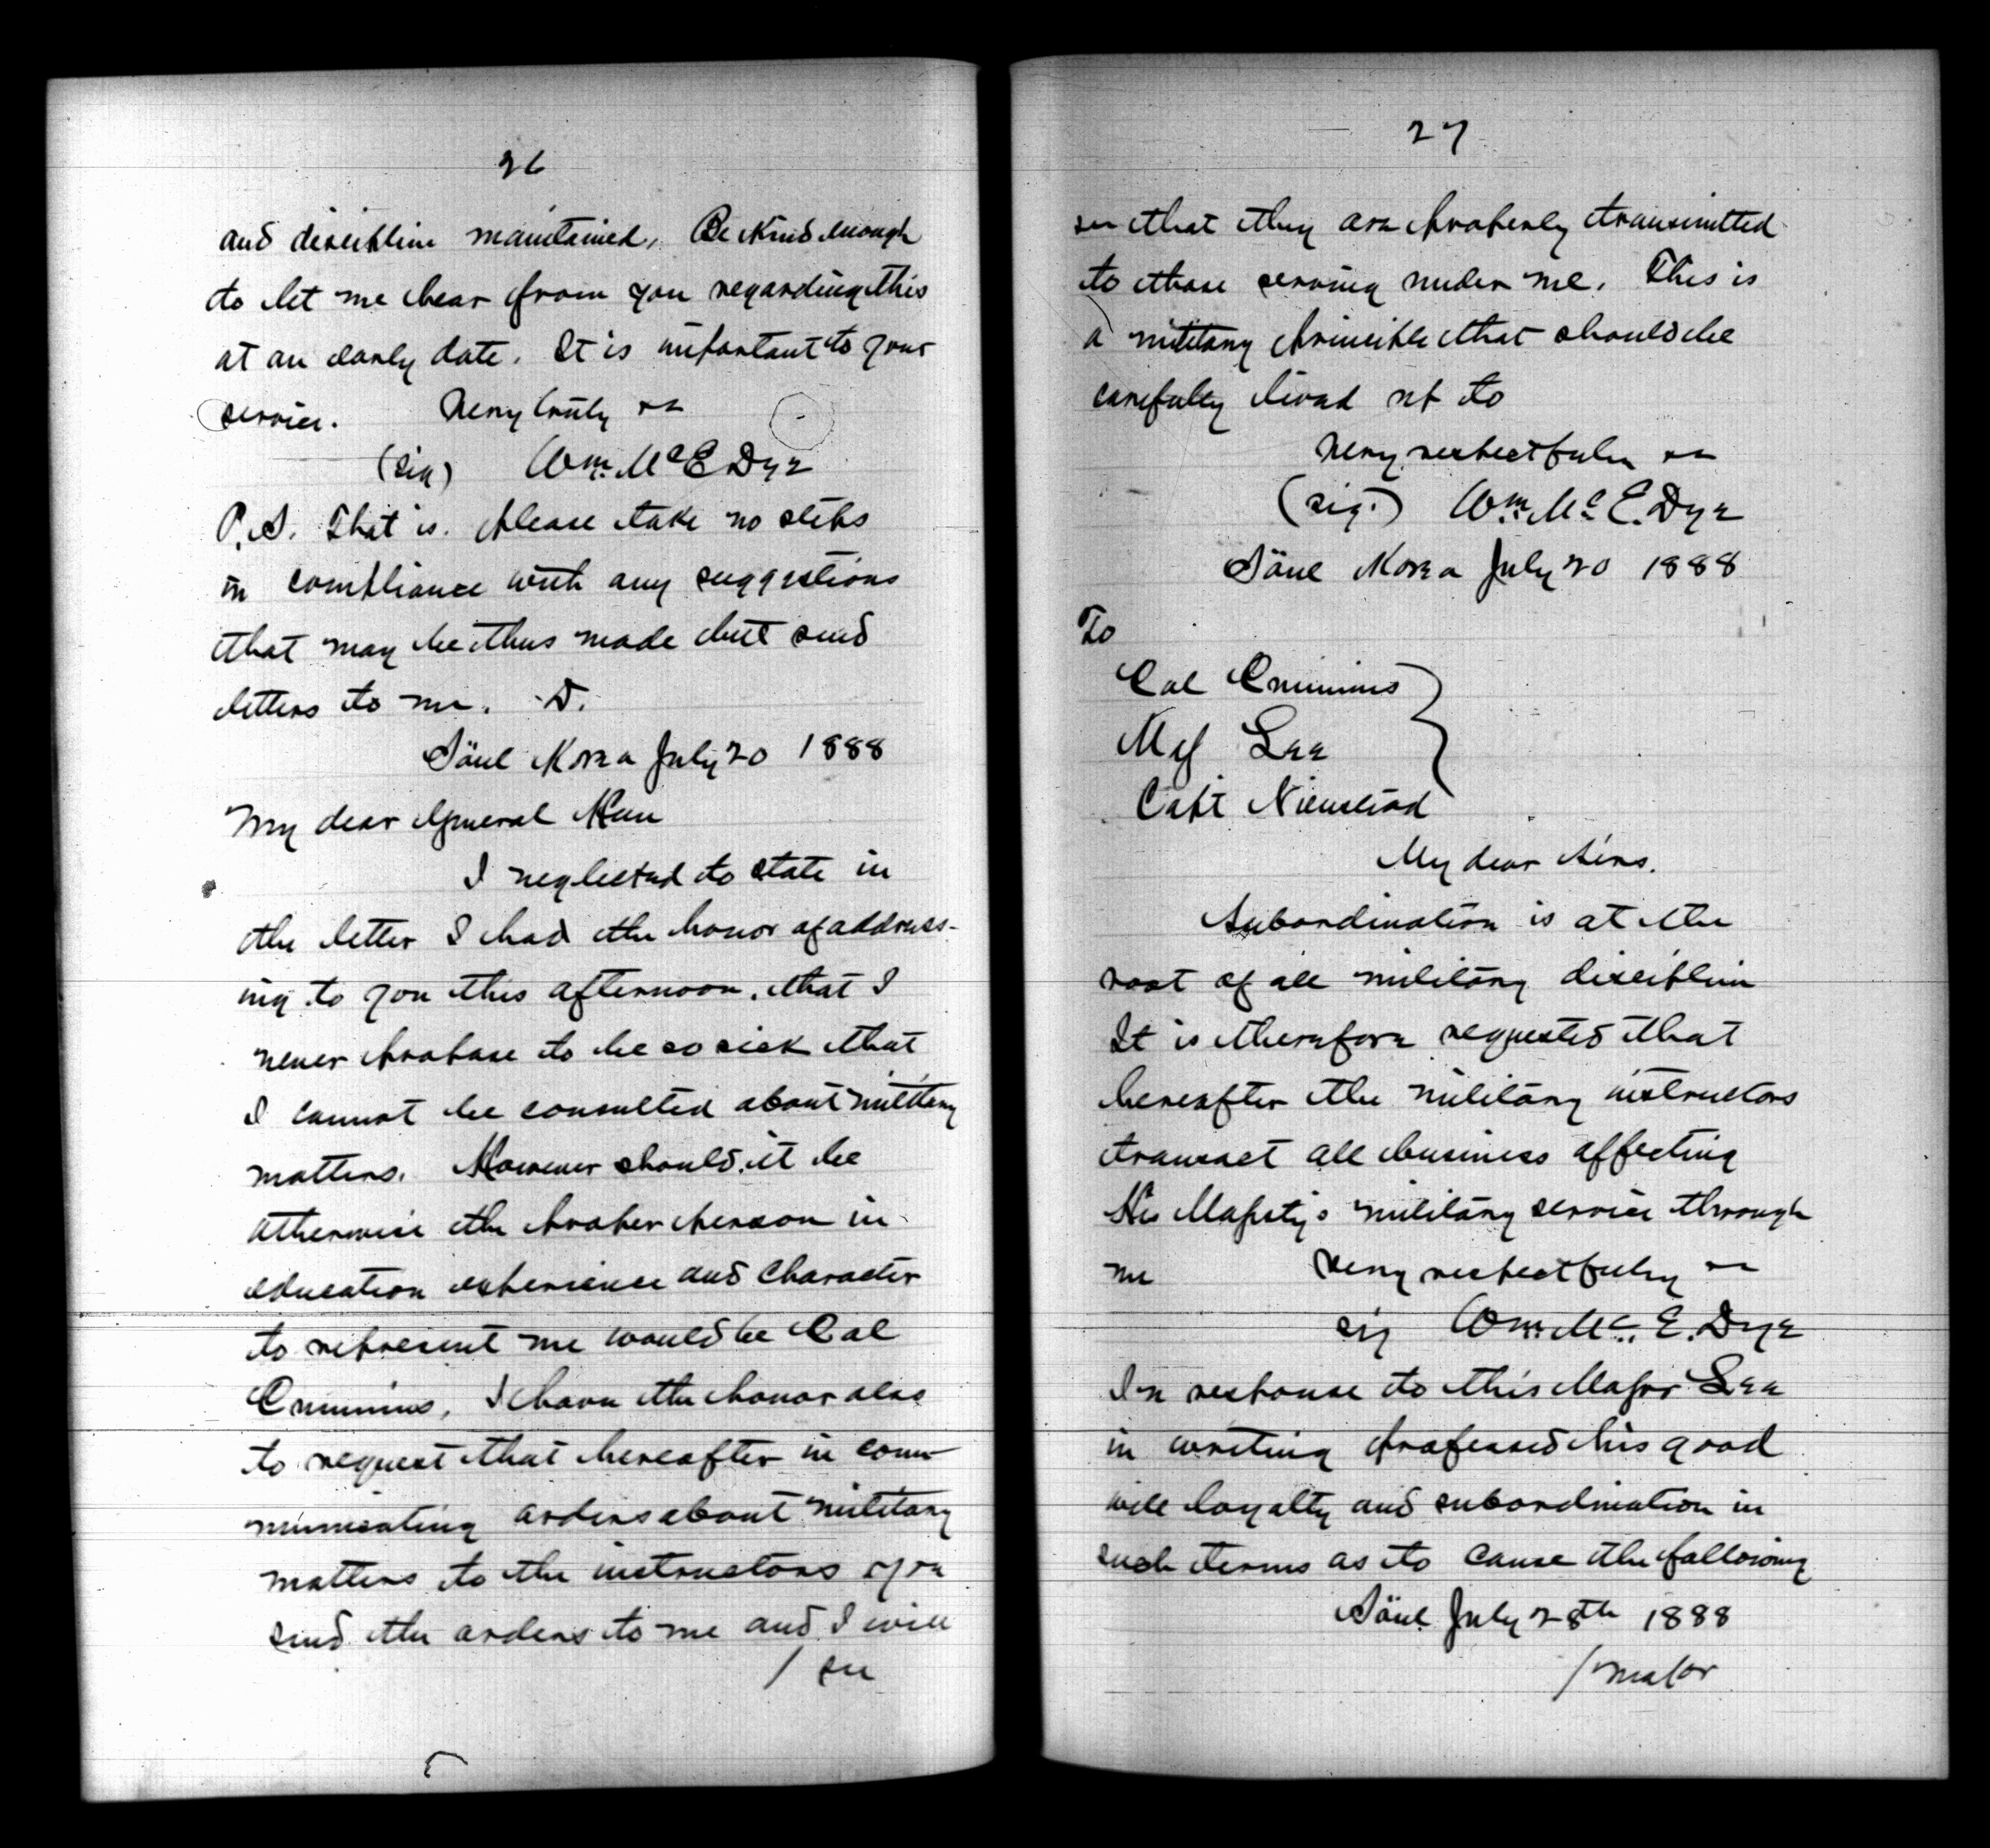 26
and discipline maintained. Be kind enough
to let me hear from you regarding this
at an early date. It is important to your
service. Very truly
(sig) Wm. McE Dye
P.S. That is. please take no steps
in compliance with any suggestions
that may be thus made but send
letters to me. D.
Säul Korea July 20 1888
My dear General Han
I neglected to state in
the letter I had the honor of address-
ing to you this afternoon, that I
never propose to be so sick that
I cannot be consulted about military
matters. However should it be
otherwise the proper person in
education experience and character
to represent me would be Col
Cummins. I have the honor also
to request that hereafter in com-
municating orders about military
matters to the instructors you
send the orders to me and I will
/ see
27
see that they are properly transmitted
to those serving under me. This is
a military principle that should be
carefully lived up to
Very respectfully
(sig.) Wm. Mc E. Dye
Säul Korea July 20 1888
To
Col Cummins
Maj Lee
Capt Nienstead
My dear Sirs.
Subordination is at the
root of all military discipline
It is therefore requested that
hereafter the military instructors
transact all business affecting
His Majesty's military service through
me Very respectfully
sig Wm. Mc. E. Dye
In response to this Major Lee
in writing professed his good
will loyalty and subordination in
such terms as to cause the following
Säul July 28th 1888
/ major